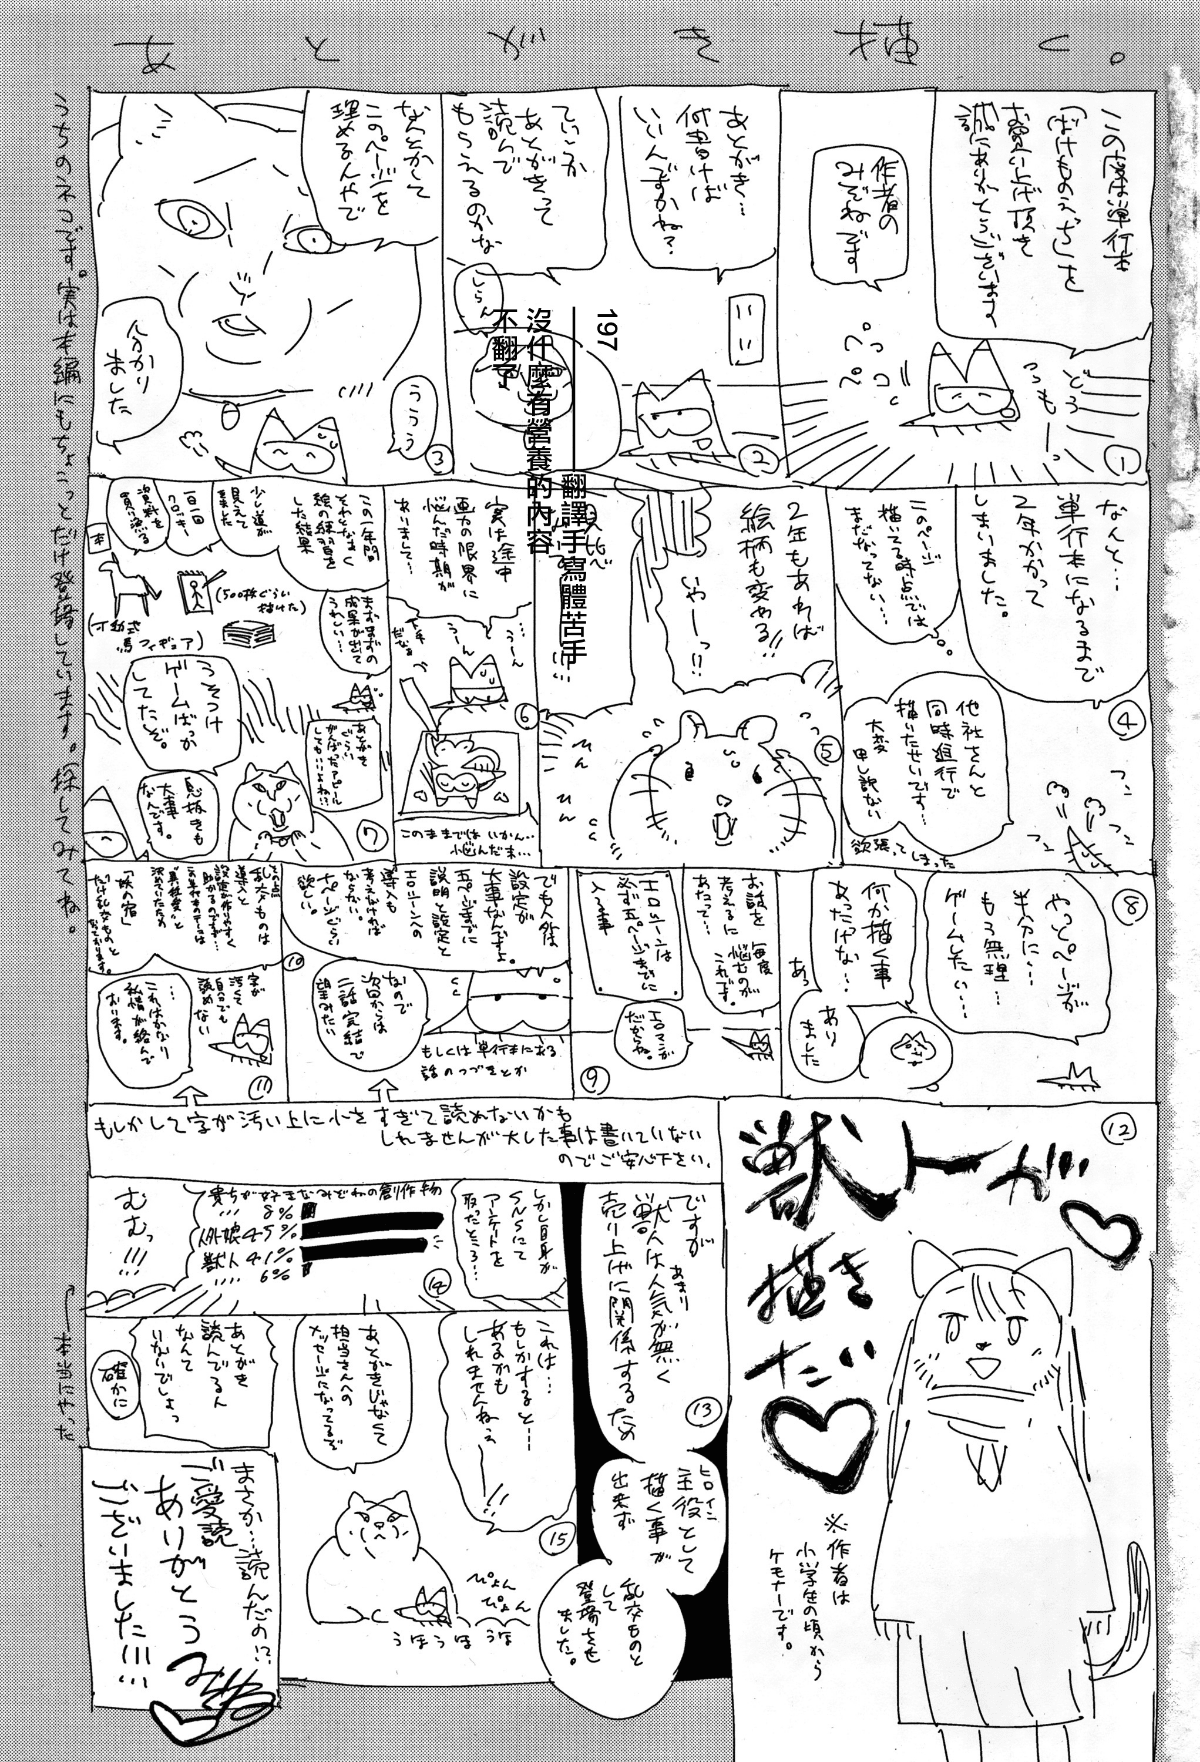 あとがき描く。
この度は単行本
「ばけものえっち」を
お買い上げ頂き
誠にありがとうございます
作者の
みぞねです
ペコペコ
どうも
①
あとがき…
何書けば
いいんですかね?
②
ていうか
あとがきって
読んで
もらえるのかな
しらん
なんとかして
このページを
埋めるんやで
ううう
分かり
ました
③
197
沒什麼有營養的內容
不翻了
翻譯手寫體苦手
なんと…
単行本になるまで
2年かかって
しまいました。
このページ
描いてる時点では
まだなってない…
他社さんと
同時進行で
描いたせいです…
大変
申し訳ない
欲張ってしまった
④
2年もあれば
絵柄も変わる!!
いやーっ!!
ひん
ひん
⑤
実は途中
画力の限界に
悩んだ時期が
ありまして…
うーん
うーん
このままではいかん…
悩んだ末…
⑥
この一年間
それとなく
絵の練習を
した結果
少し道が
見えて
きました
一日一回
クロッキー
資料を
買い漁る
本
(500枚ぐらい
描けた)
(可動式
馬フィギュア)
まずまずの
成果が出て
うれしい…
あとがき
ぐらい
がんばったアピール
してもいいよね…?
うそつけ
ゲームばっか
してたぞ。
息抜きも
大事
なんです。
⑦
やっとページが
半分に…
もう無理…
ゲームしたい…
⑧
何か描く事
あったかな…
あっ
あり
ました
お話を
考えるに
あたって…
毎度
悩むのが
これです。
エロシーンは
必ず五ページまでに
入る事
エロマンガ
だからね。
⑨
でも人外は
設定が
大事なんですよ。
五ページまでに
説明と設定と
エロシーンへの
導入も
考えなければ
ならない。
十ページぐらい
欲しい。
なので
次回からは
二話完結で
望みたい
もしくは単行本にある
話のつづきとか
⑩
その点
乱交ものは
導入と
設定が作りやすく
助かるのですが…
「妖の宿」
だけ乱交ものと
なっております。
…
これはかなり
私情が絡んで
おります。
字が
汚くて
自分でも
読めない
⑪
もしかして字が汚い上に小さすぎて読めないかも
しれませんが大した事は書いていない
のでご安心下さい。
⑫
獣トーが
描き
たい
※作者は
小学生の頃から
ケモナーです。
ですが
獣人はあまり
人気が無く
売り上げに関係するため
⑬
ヒロイン
主役として
描く事が
出来ず
乱交ものと
して
登場させ
ました。
しかし自身が
SNSにて
アンケートを
取ったところ…
貴方が好きなみぞねの創作物
8%
人外娘45%
獣人41%
6%
むむっ
!!!
⑭
これは…
もしかすると…
あるかも
しれませんねぇ
!!
⑮
あとがきじゃなくて
担当さんへの
メッセージになってるぞ
ぴょん
ぴょん
うほうほ
うほ
あとがき
読んでるん
なんて
いないでしょっ
確かに
まさか…読んだの!?
ご愛読
ありがとう
ございました!!!
みぞね
うちのネコです。実は本編にもちょこっとだけ登場しています。探してみてね。
本当にやった